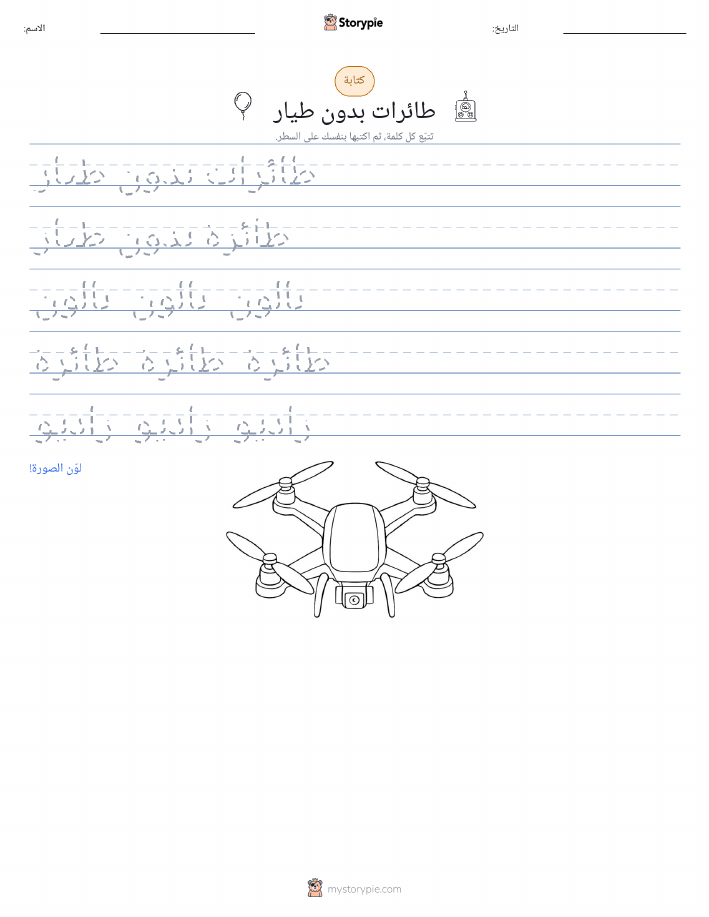 الاسم:
Storypie
التاريخ:
كتابة
طائرات بدون طيار
تتبّع كل كلمة، ثم اكتبها بنفسك على السطر.
طائرات بدون طيار
طائرة بدون طيار
بالون بالون بالون
طائرة طائرة طائرة
راديو راديو راديو
لوّن الصورة!
mystorypie.com